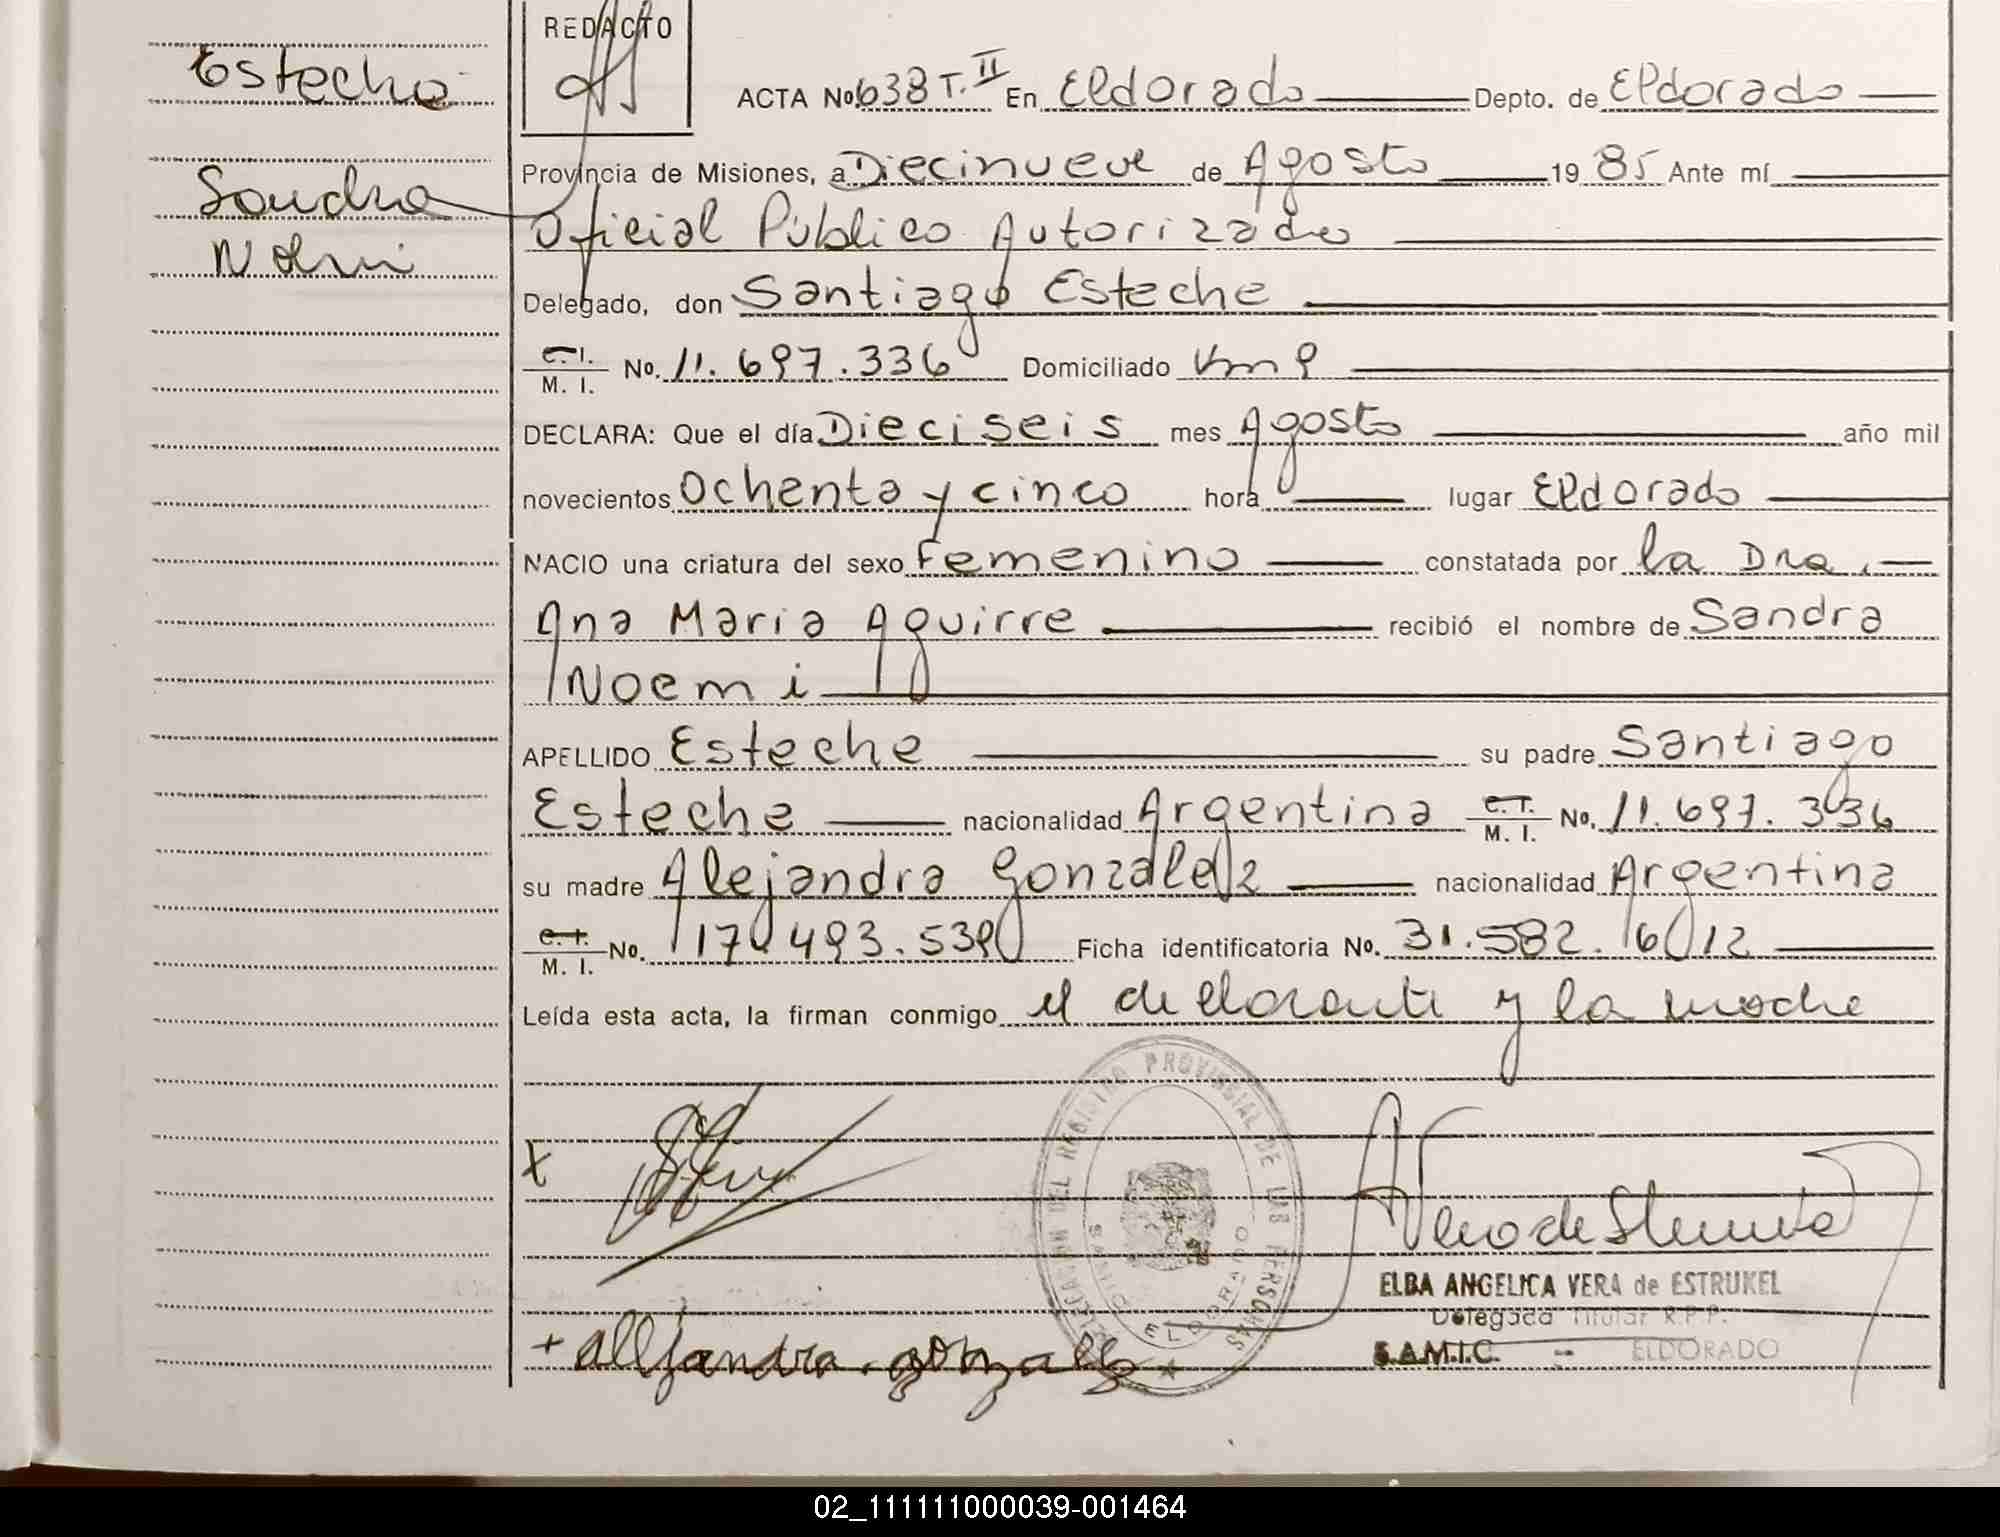 REDACTO
Esteche
Sandra
Noemi
ACTA No. 638 T. II En Eldorado Depto. de Eldorado
Provincia de Misiones, a Diecinueve de Agosto 1985 Ante mí
Oficial Público Autorizado
Delegado, don Santiago Esteche
C. I. M. I. No. 11.697.336 Domiciliado Km 9
DECLARA: Que el día Dieciseis mes Agosto año mil
novecientos Ochenta y cinco hora lugar Eldorado
NACIO una criatura del sexo Femenino constatada por la Dra.
Ana Maria Aguirre recibió el nombre de Sandra
Noemi
APELLIDO Esteche su padre Santiago
Esteche nacionalidad Argentina C. I. M. I. No. 11.697.336
su madre Alejandra Gonzalez nacionalidad Argentina
C. I. M. I. No. 17.493.539 Ficha identificatoria No. 31.582.612
Leída esta acta, la firman conmigo el declarante y la madre
DELEGACION DEL REGISTRO PROVINCIAL DE LAS PERSONAS
ELDORADO
x
ELBA ANGELICA VERA de ESTRUKEL
Delegada Titular R.P.P.
+ allejandra gonzalez
S.A.M.I.C. -- ELDORADO
02_111111000039-001464